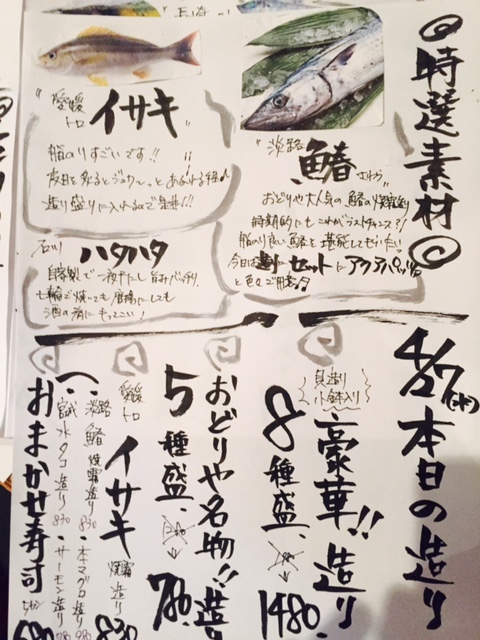 ◎特選素材◎
淡路
鰆 さわら
おどりや大人気の鰆の焼霜造り
時期的にもこれがラストチャンス?!
脂のり良い鰆を堪能してもらいたい
今日は セットに アクアパッツァ
と色々ご用意
"愛媛
トロ イサキ"
脂のりすごいです!!
皮目を炙るとジュワ〜っとあふれる程♪
造り盛りに入れるので是非!!
石川 ハタハタ
自家製で一夜干にし旨みバッチリ
七輪で焼いても唐揚にしても
酒の肴にもってこい!
4/27(水)本日の造り
豪華!!造り
貝造り
小鉢入り
8種盛 1480.
おどりや名物!!造り
5種盛 780.
愛媛
トロ イサキ 焼霜造り 830
淡路 鰆 焼霜造り 830
・本マグロ造り 980
・宮城 水タコ造り 830
・サーモン造り
おまかせ寿司 5かん 680